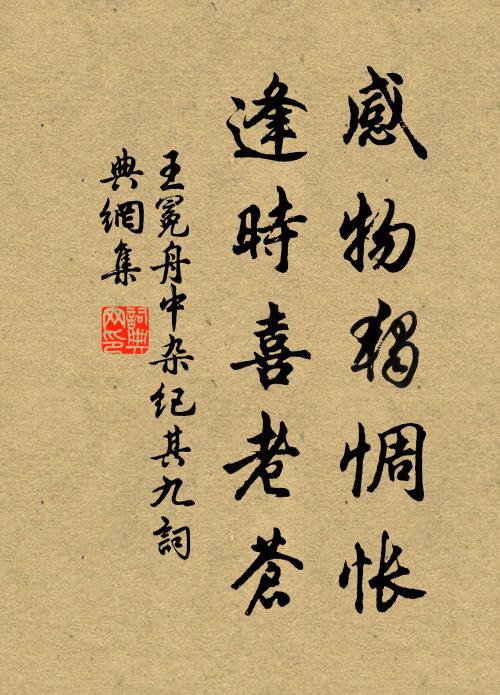 感物独惆怅
逢時喜老苍
王冕舟中杂纪其九詞
典網集
詞典网印